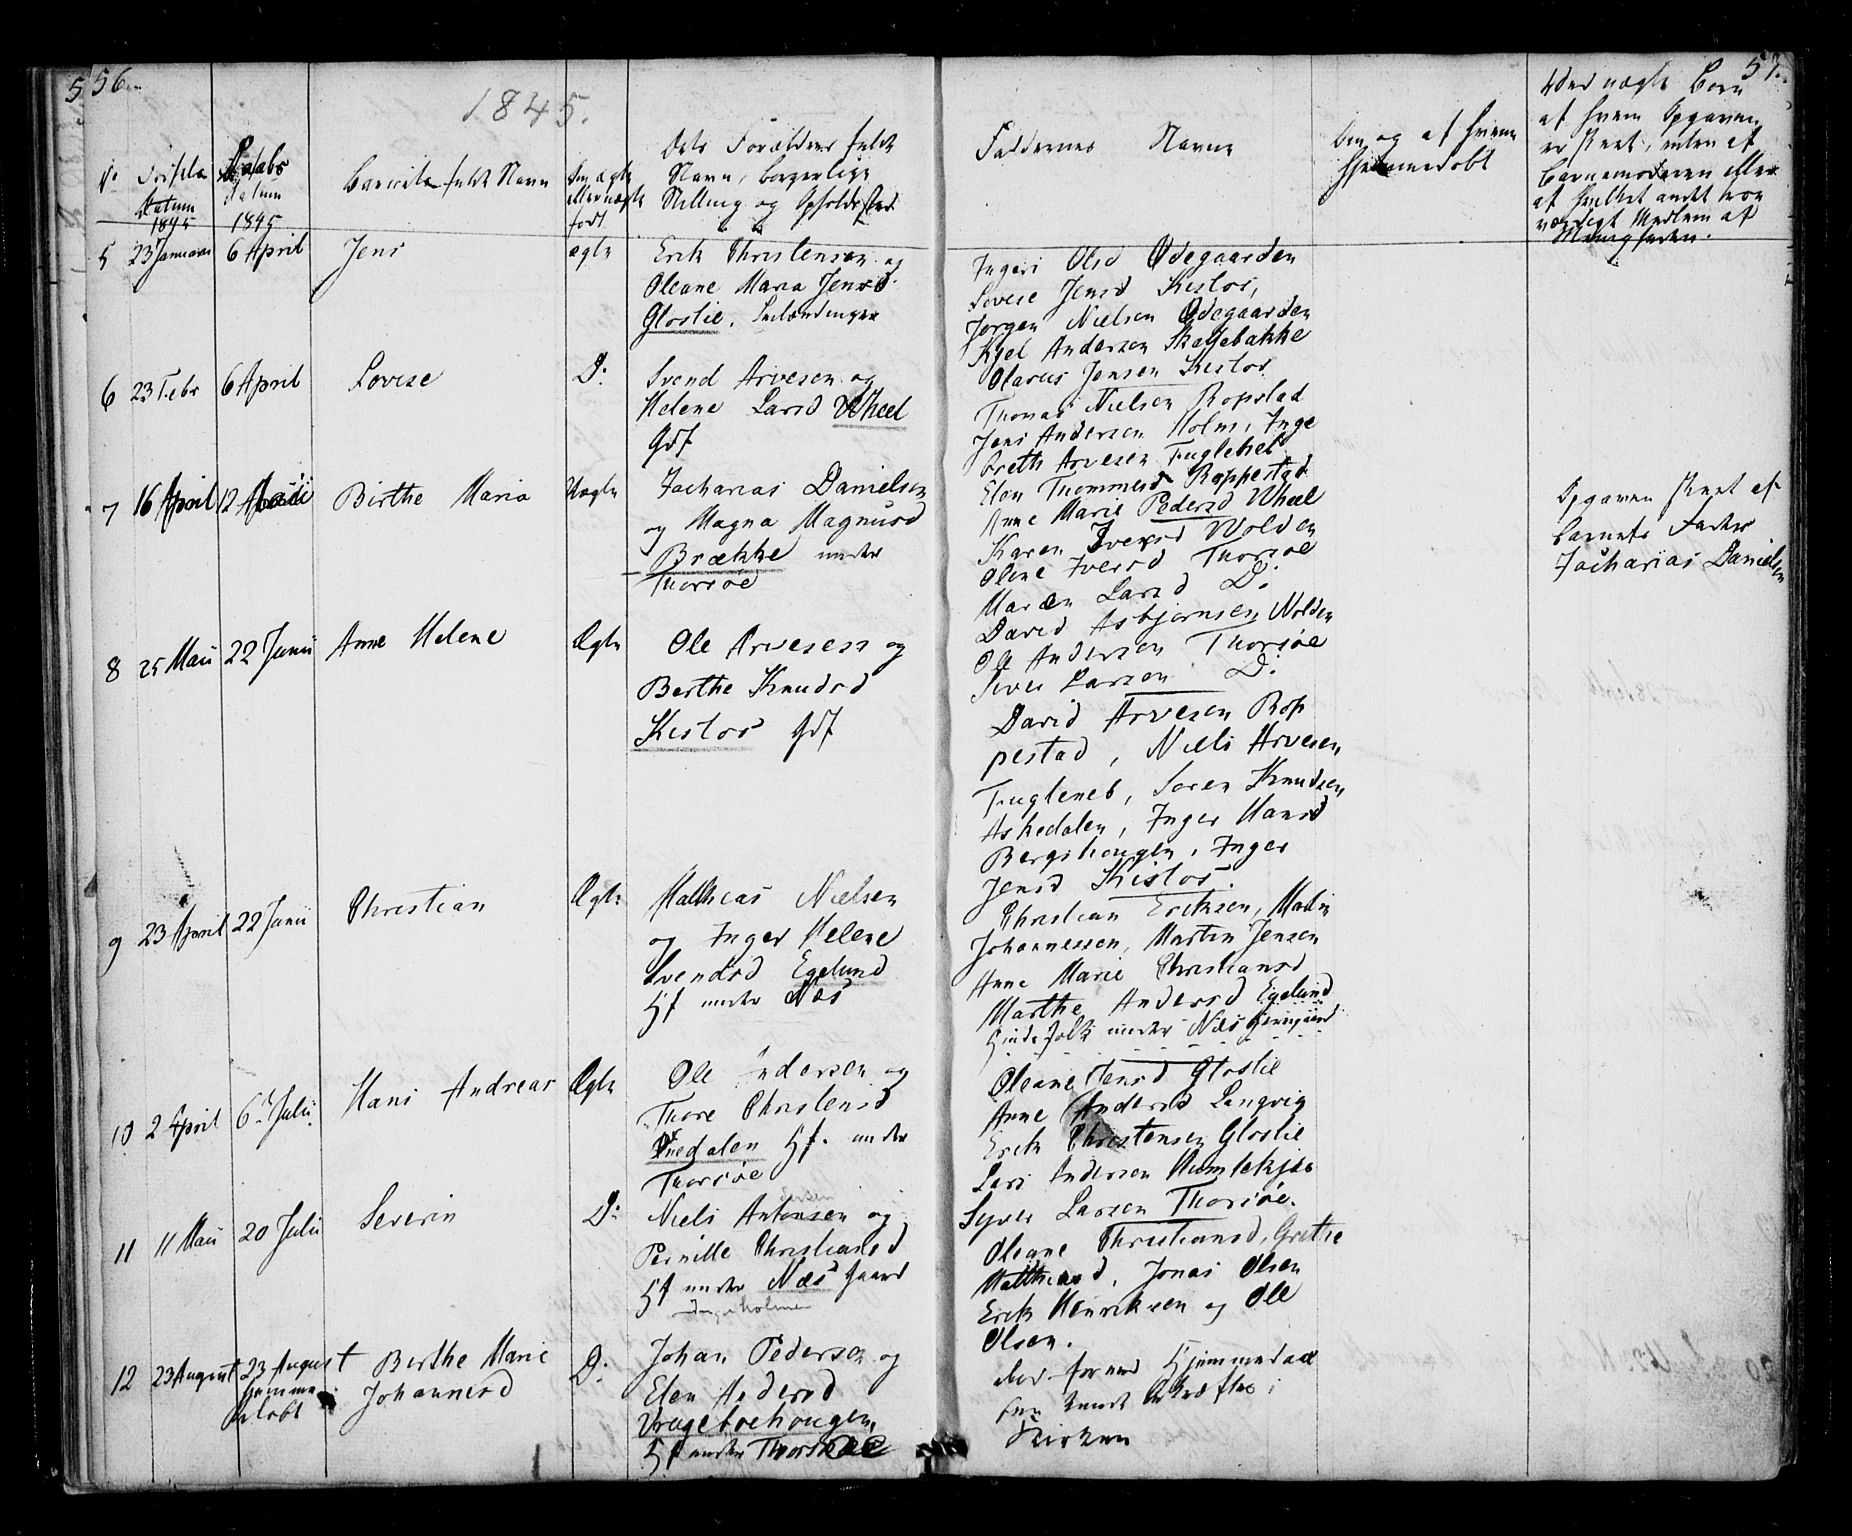 56.
1845.
No Fødsels Datum 1845
Daabs Datum 1845
Barnets fulde Navn
Om ægte eller uægte født
Dets Forældres fulde Navn, borgerlige Stilling og Opholdssted
5 23 Januar 6 April Jens ægte
Erik Christensen og
Oleane Maria Jensd.
Gloslie. Indlændinger
6 23 Febr 6 April Lovise D:
Svend Arvesen og
Helene Larsd Wheel
Gdf
7 16 April 12 Maii Birthe Maria Uægte
Zacharias Danielsen
og Magna Magnusd
Brække under
Thorsøe
8 25 Maii 22 Junii Anne Helene Ægte
Ole Arvesen og
Berthe Knudsd
Kistos Gdf
9 23 April 22 Junii Christian Ægte
Mathias Nielsen
og Inger Helene
Svendsd Egelund
Hf under Næs
10 2 April 6te Julii Hans Andreas Ægte
Ole Andersen og
Thore Christensd
Hf. under
Thorsøe
11 11 Maii 20 Julii Severin D:
Niels Antonsen og
Pernille Christiansd
Hf under Næs Gaard
12 23 August 23 August Hjemmedøbt Berthe Marie Johannesd D:
Johan Pedersen og
Elen Andersd
Hf under Thorsøe
57.
Faddernes Navne
Om og af hvem hjemmedøbt
Ved uægte Børn
af hvem Opgaven
er skeet, enten af
Barnemoderen eller
af hvilket andet troe
værdigt Medlem af
Menigheden.
Ingeri Olsd Ødegaarden
Lovise Jensd Kistos,
Jørgen Nielsen Ødegaarden
Kjel Andersen Skaljebakke
Olaves Jensen Kistos
Thomas Nielsen Ropstad
Jens Andersen Holm, Inge
Greth Arvesen Fugleneb
Elen Thommesd Roppestad
Anne Marie Pedersd Wheel
Karen Iversd Wolden
Olene Iversd Thorsøe
Maren Larsd D:
David Asbjørnsen Wolden
Ole Andersen Thorsøe
Siver Larsen D:
Opgaven skeet af
Barnets Fader
Zacharias Danielsen
David Arvesen Rop
pestad, Niels Arvesen
Fugleneb, Søren Knudsen
Askedalen, Inger Hansd
Bergshougen, Inger
Jensd Kistos.
Christian Eriksen, Martin
Johannessen, Martin Jensen
Anne Marie Christiansd
Marthe Andersd Egelund
under Næs
Oleane Jensd Gloslie
Anne Andersd Langvig
Erik Christensen Gloslie
Lars Andersen Humlekjær
Syver Larsen Thorsøe.
Oleane Christiansd, Grethe
Matthiasd, Jonas Olsen
Erik Henriksen og Ole
Olsen.
Hjemmedaab
Kirken